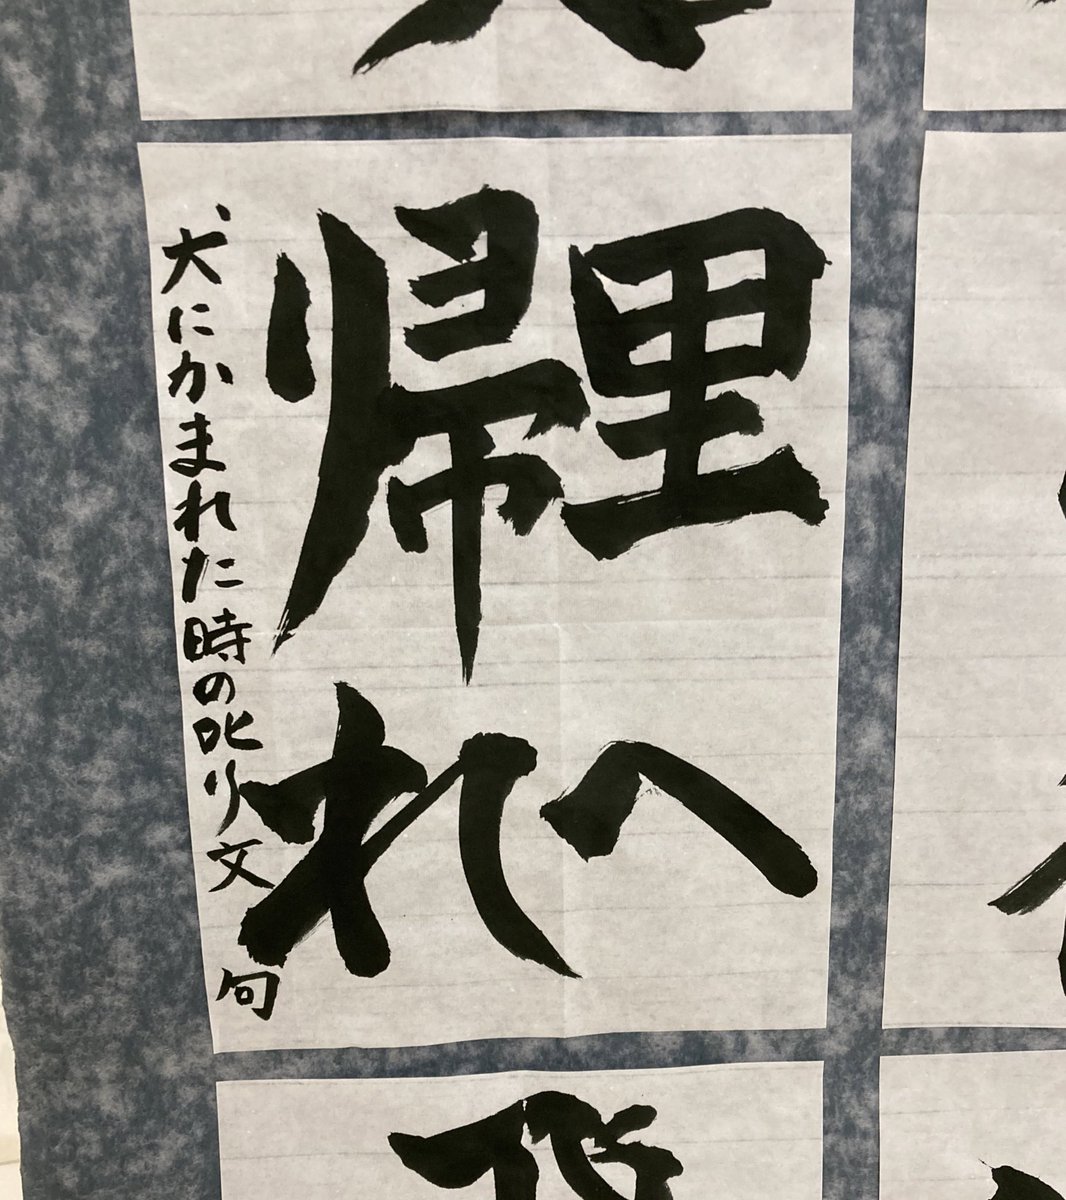 里へ
帰れ
犬にかまれた時の叱り文句